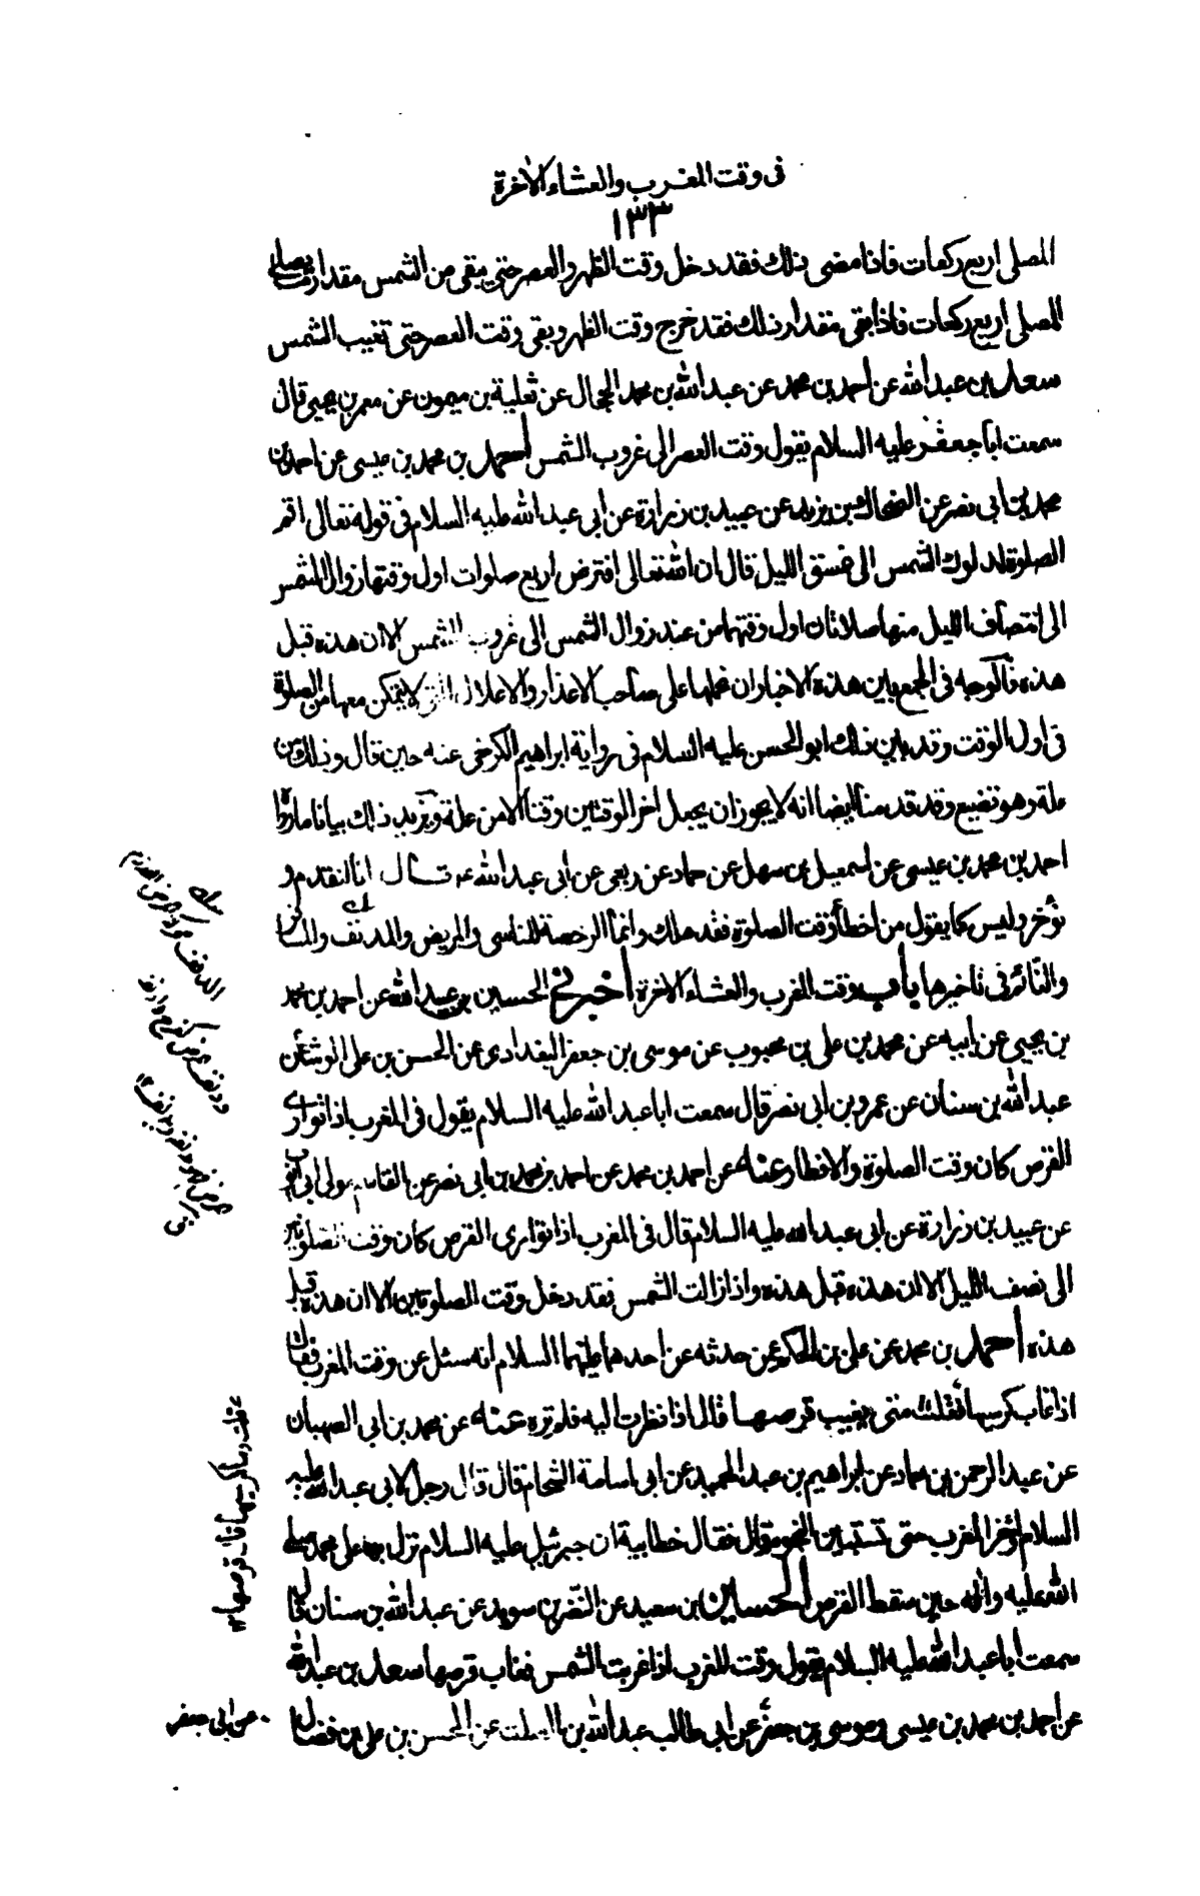 فى وقت المغرب والعشاء الاخرة
١٣٣
المصلى اربع ركعات فاذا مضى ذلك فقد دخل وقت الظهر والعصر حتى يبقى من الشمس مقدار ما يصلى
المصلى اربع ركعات فاذا بقى مقدار ذلك فقد خرج وقت الظهر وبقى وقت العصر حتى تغيب الشمس
سعد بن عبد الله عن احمد بن محمد عن عبد الله بن محمد الحجال عن ثعلبة بن ميمون عن معمر بن يحيى قال
سمعت ابا جعفر عليه السلام يقول وقت العصر الى غروب الشمس احمد بن محمد بن عيسى عن احمد بن
محمد بن ابى نصر عن الضحاك بن يزيد عن عبيد بن زرارة عن ابى عبد الله عليه السلام فى قوله تعالى اقم
الصلوة لدلوك الشمس الى غسق الليل قال ان الله تعالى افترض اربع صلوات اول وقتها زوال الشمس
الى انتصاف الليل منها صلاتان اول وقتهما من عند زوال الشمس الى غروب الشمس الا ان هذه قبل
هذه فالوجه فى الجمع بين هذه الاخبار ان نحملها على صاحب الاعذار والاعلال التى لا يتمكن معها من الصلوة
فى اول الوقت وقد بين ذلك ابو الحسن عليه السلام فى رواية ابراهيم الكرخى عنه حين قال وذلك من
علة وهو تضييع وقد قدمنا ايضا انه لا يجوز ان يجعل اخر الوقتين وقتا الا من علة ويزيد ذلك بيانا ما رواه
احمد بن محمد بن عيسى عن اسمعيل بن سهل عن حماد عن ربعى عن ابى عبد الله ع قال انا لنقدم و
نؤخر وليس كما يقول من اخطأ وقت الصلوة فقد هلك وانما الرخصة للناسى والمريض والمدنف والمسافر
والنائم فى تاخيرها باب وقت المغرب والعشاء الاخرة اخبرنى الحسين بن عبيد الله عن احمد بن محمد
بن يحيى عن ابيه عن محمد بن على بن محبوب عن موسى بن جعفر البغدادى عن الحسن بن على الوشا عن
عبد الله بن سنان عن عمرو بن ابى نصر قال سمعت ابا عبد الله عليه السلام يقول فى المغرب اذا توارى
القرص كان وقت الصلوة والافطار وعنه عن احمد بن محمد عن احمد بن محمد بن ابى نصر عن القاسم مولى ابى ايوب
عن عبيد بن زرارة عن ابى عبد الله عليه السلام قال فى المغرب اذا توارى القرص كان وقت الصلوتين
الى نصف الليل الا ان هذه قبل هذه واذا زالت الشمس فقد دخل وقت الصلوتين الا ان هذه قبل
هذه احمد بن محمد عن على بن الحكم عمن حدثه عن احدهما عليهما السلام انه سئل عن وقت المغرب فقال
اذا غاب كرسيها فقلت متى يغيب قرصها قال اذا نظرت اليه فلم تره عنه عن محمد بن ابى الصهبان
عن عبد الرحمن بن حماد عن ابراهيم بن عبد الحميد عن ابى اسامة الشحام قال قال رجل لابى عبد الله عليه
السلام اؤخر المغرب حتى تستبين النجوم قال فقال خطابية ان جبرئيل عليه السلام نزل بها على محمد صلى
الله عليه واله حين سقط القرص الحسين بن سعيد عن النضر بن سويد عن عبد الله بن سنان قال
سمعت ابا عبد الله عليه السلام يقول وقت المغرب اذا غربت الشمس فغاب قرصها سعد بن عبد الله
عن احمد بن محمد بن عيسى وموسى بن جعفر عن ابى طالب عبد الله بن الصلت عن الحسن بن على بن فضال
فقلت وما كرسيها قال قرصها
عن ابى جعفر